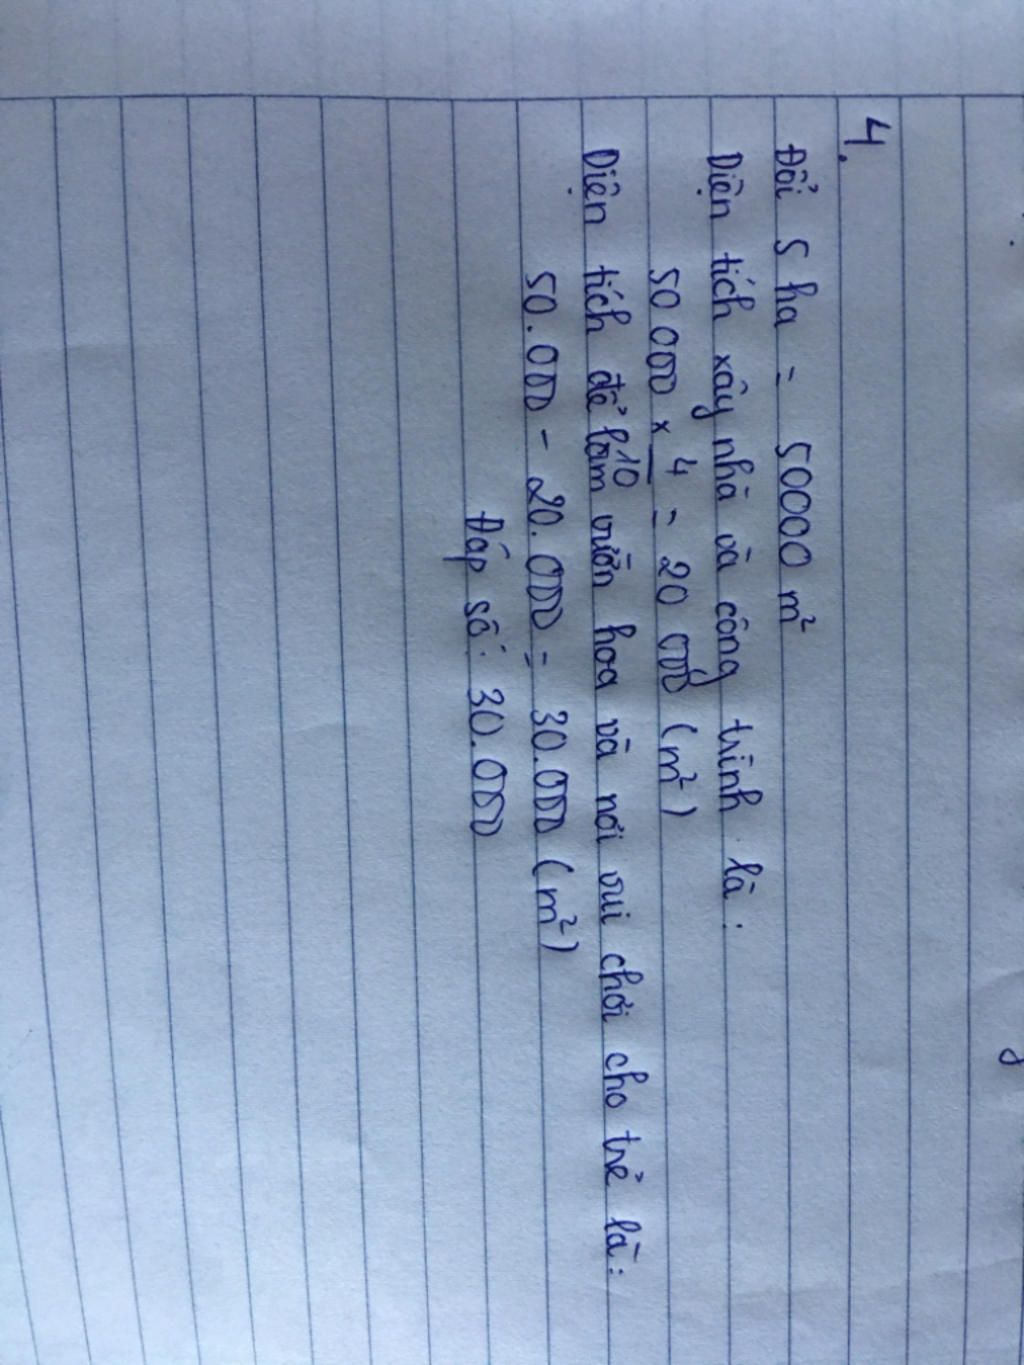 4.
Đổi 5 ha = 50000 m²
Diện tích xây nhà và công trình là:
50 000 × 4/10 = 20 000 (m²)
Diện tích để làm vườn hoa và nơi vui chơi cho trẻ là:
50.000 - 20.000 = 30.000 (m²)
Đáp số: 30.000